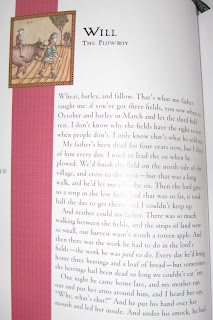 WILL
THE PLOWBOY
Wheat, barley, and fallow. That's what my father
taught me: if you've got three fields, you sow wheat in
October and barley in March and let the third field
rest. I don't know why the fields have the right to rest
when people don't. I only know that's what he told me.
My father's been dead for four years now, but I think
of him every day. I used to lead the ox when he
plowed. We'd finish the field on the north side of the
village, and cross to the west—but that was a long
walk, and he'd let me the ox. Then the lord gave
us a strip in the low and that was so far, it took
half the day to get there, and I couldn't keep up.
And neither could my father. There was so much
walking between the fields, and the strips of land were
so small, our harvest wasn't worth a rotten apple. And
then there was the work he had to do in the lord's
fields—the work he was paid to do. Every day he'd bring
home three herrings and a loaf of bread—but sometimes
the herrings had been dead so long we couldn't eat 'em.
One night he came home late, and my mother ran
out and put her arms around him, and I heard her say,
"Why, what's that?" And he put his hand over her
mouth and led her inside. And under his smock, he had